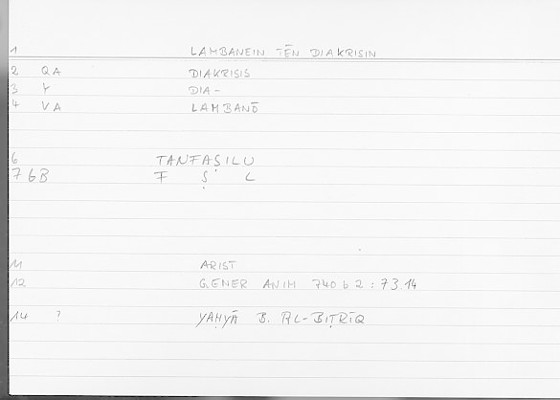 1 LAMBANEIN TĒN DIAKRISIN
2 QA DIAKRISIS
3 Y DIA-
4 VA LAMBANŌ
6 TANFAṢILU
7 GB F Ṣ L
11 ARIST
12 GENER ANIM 740 b 2 : 73.14
14 ? YAḤYĀ B. AL-BIṬRĪQ